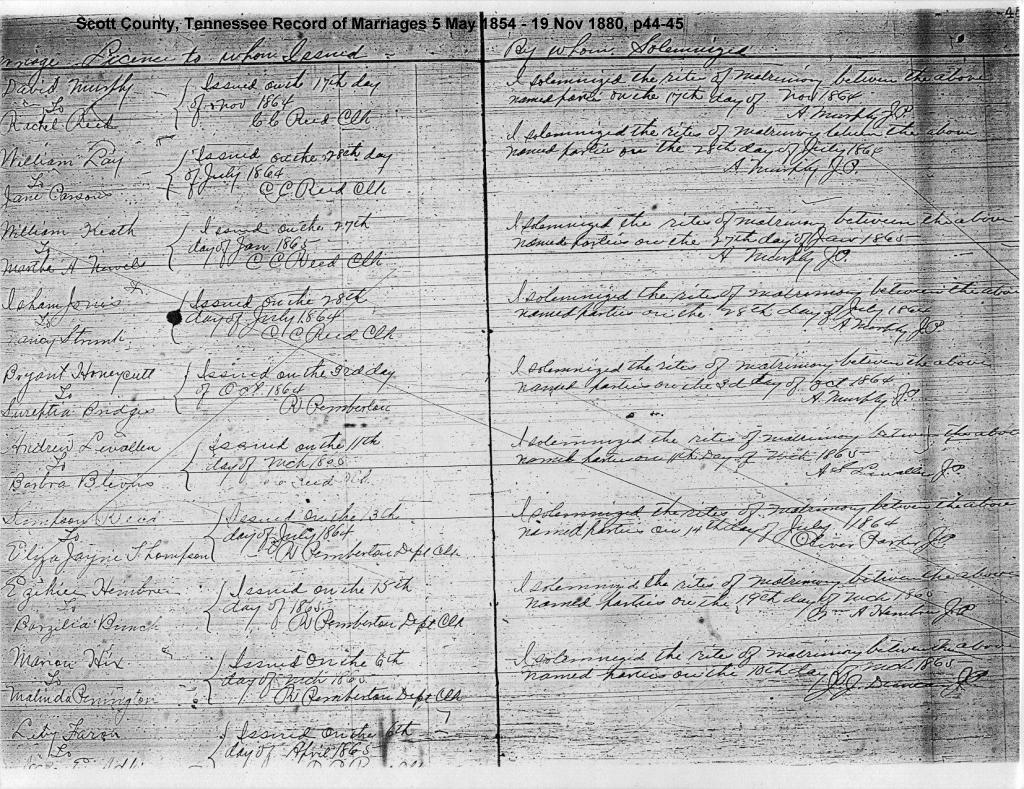 Scott County, Tennessee Record of Marriages 5 May 1854 - 19 Nov 1880, p44-45
License to whom Issued
By whom Solemnized
David Murphy
To
Rachel Reed
Issued on the 17th day
of Nov 1864
CC Reed Clk
I solemnized the rites of matrimony between the above
named parties on the 17th day of Nov 1864
A Murphy J.P.
William Lay
To
Jane Parsons
Issued on the 28th day
of July 1864
C.C. Reed Clk
I solemnized the rites of matrimony between the above
named parties on the 28th day of July 1864
A Murphy J.P.
William Heath
To
Martha A
Issued on the 27th
day of Jan 1865
C C Reed Clk
I solemnized the rites of matrimony between the above
named parties on the 27th day of Jan 1865
A Murphy J.P.
Isham Jones
To
Nancy Strunk
Issued on the 28th
day of July 1864
C.C. Reed Clk
I solemnized the rites of matrimony between the above
named parties on the 28th day of July 1864
A Murphy J.P.
Bryant Honeycutt
To
Bridges
Issued on the 3rd day
of Oct. 1864
R Pemberton
I solemnized the rites of matrimony between the above
named parties on the 3d day of Oct 1864
A Murphy J.P.
Andrew Lewallen
To
Barbra Blevins
Issued on the 11th
day of Mch 1865
CC Reed Clk
I solemnized the rites of matrimony between the above
named parties on 11th Day of Mch 1865
Lewallen J.P.
Simpson Reed
To
Eliza Jayne Thompson
Issued on the 13th
day of July 1864
R Pemberton Dept Clk
I solemnized the rites of matrimony between the above
named parties on 14th day of July 1864
Oliver Parker J.P.
Ezikiel Hembree
To
Barzilia Bunch
Issued on the 15th
day of 1865
R Pemberton Dept Clk
I solemnized the rites of matrimony between the above
named parties on the 19th day of Mch 1865
A Hembree J.P.
Marion Hix
To
Malinda Penington
Issued on the 6th
day of Mch 1865
R Pemberton Dept Clk
I solemnized the rites of matrimony between the above
named parties on the 10th day of Mch 1865
J.P.
To
Issued on the 6th
day of April 1865